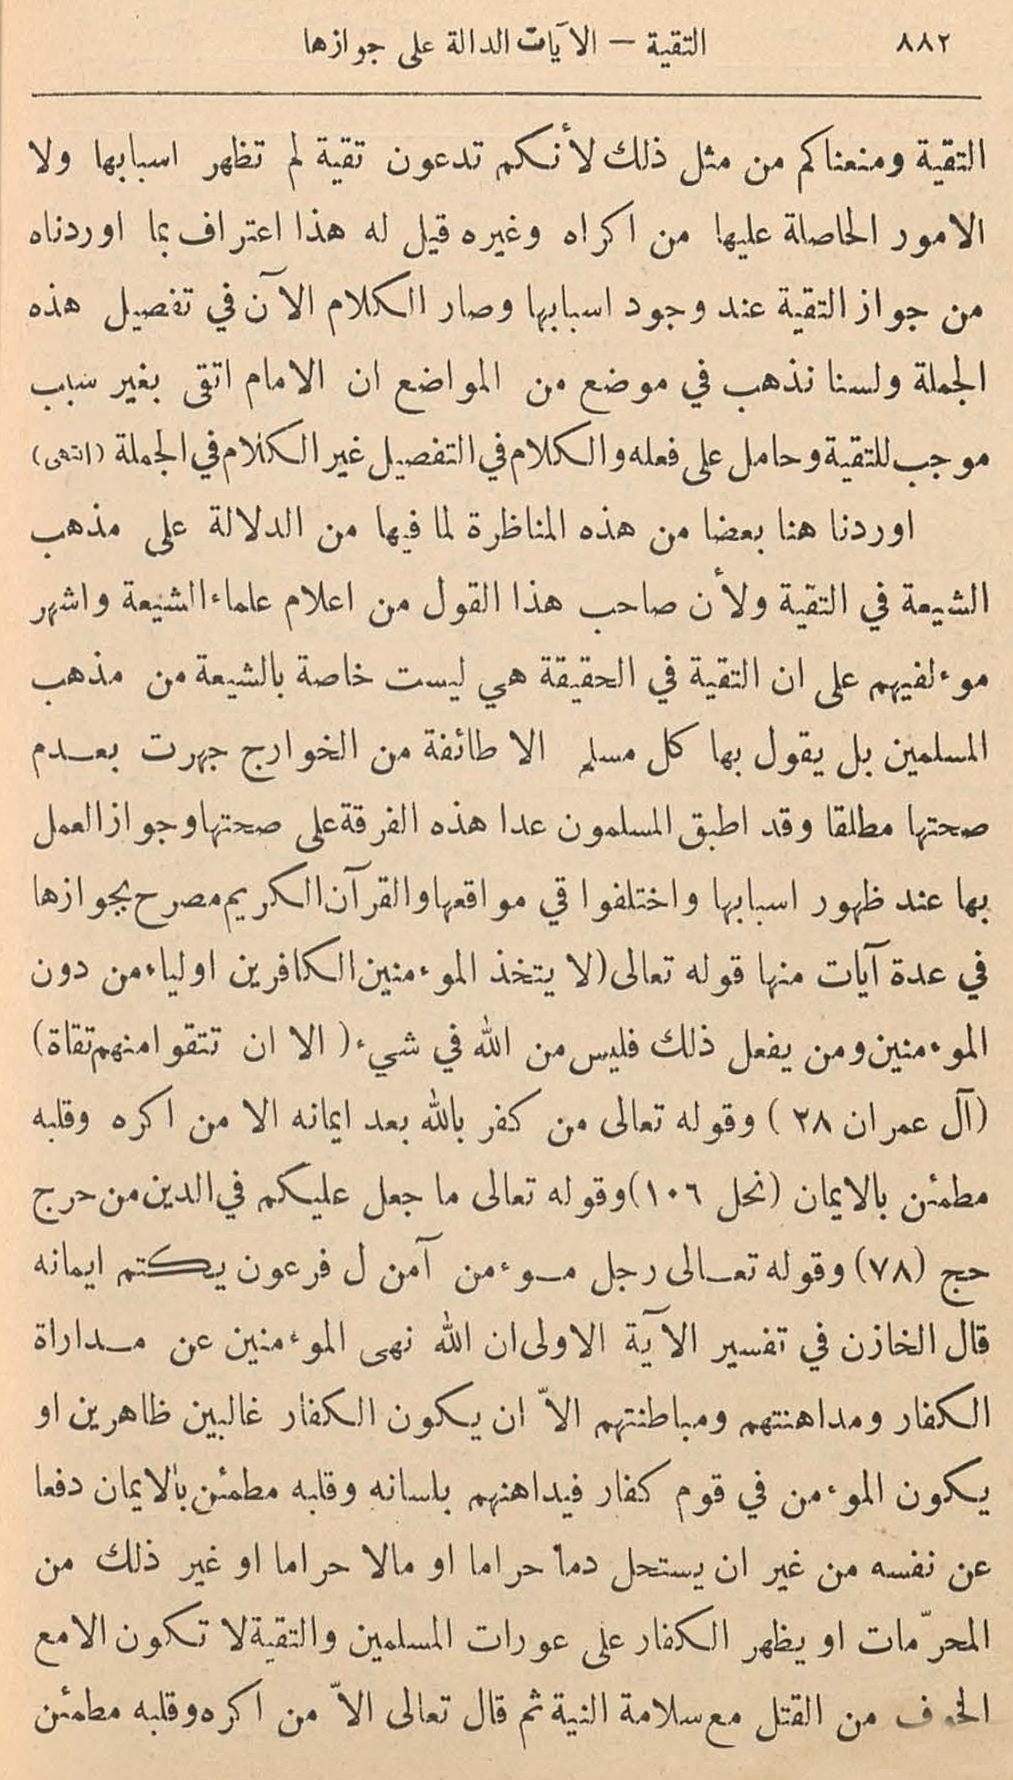 ٨٨٢ التقية — الآيات الدالة على جوازها
التقية ومنعناكم من مثل ذلك لأنكم تدعون تقية لم تظهر اسبابها ولا
الامور الحاصلة عليها من اكراه وغيره قيل له هذا اعتراف بما اوردناه
من جواز التقية عند وجود اسبابها وصار الكلام الآن في تفصيل هذه
الجملة ولسنا نذهب في موضع من المواضع ان الامام اتقى بغير سبب
موجب للتقية وحامل على فعله والكلام في التفصيل غير الكلام في الجملة (انتهى)
اوردنا هنا بعضا من هذه المناظرة لما فيها من الدلالة على مذهب
الشيعة في التقية ولأن صاحب هذا القول من اعلام علماء الشيعة واشهر
موءلفيهم على ان التقية في الحقيقة هي ليست خاصة بالشيعة من مذهب
المسلمين بل يقول بها كل مسلم الا طائفة من الخوارج جهرت بعدم
صحتها مطلقا وقد اطبق المسلمون عدا هذه الفرقة على صحتها وجواز العمل
بها عند ظهور اسبابها واختلفوا قي مواقعها والقرآن الكريم مصرح بجوازها
في عدة آيات منها قوله تعالى (لا يتخذ الموءمنين الكافرين اولياء من دون
الموءمنين ومن يفعل ذلك فليس من الله في شيء ( الا ان تتقوا منهم تقاة)
(آل عمران ٢٨ ) وقوله تعالى من كفر بالله بعد ايمانه الا من اكره وقلبه
مطمئن بالايمان (نحل ١٠٦) وقوله تعالى ما جعل عليكم في الدين من حرج
حج (٧٨) وقوله تعالى رجل موءمن آمن ل فرعون يكتم ايمانه
قال الخازن في تفسير الآية الاولى ان الله نهى الموءمنين عن مداراة
الكفار ومداهنتهم ومباطنتهم الاّ ان يكون الكفار غالبين ظاهرين او
يكون الموءمن في قوم كفار فيداهنهم بلسانه وقلبه مطمئن بالايمان دفعا
عن نفسه من غير ان يستحل دما حراما او مالا حراما او غير ذلك من
المحرّمات او يظهر الكفار على عورات المسلمين والتقية لا تكون الا مع
الخوف من القتل مع سلامة النية ثم قال تعالى الاّ من اكره وقلبه مطمئن